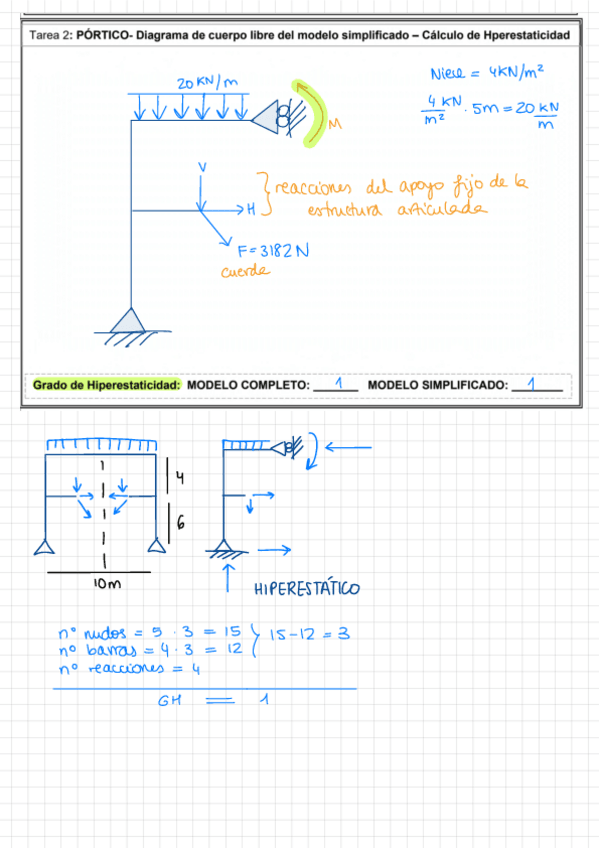 Tarea 2: PÓRTICO- Diagrama de cuerpo libre del modelo simplificado – Cálculo de Hperestaticidad
Nieve = 4KN/m²
20 KN/m
4 KN/m² · 5m = 20 KN/m
M
V
H
reacciones del apoyo fijo de la
estructura articulada
F = 3182 N
cuerda
Grado de Hiperestaticidad: MODELO COMPLETO: 1 MODELO SIMPLIFICADO: 1
4
6
10m
HIPERESTÁTICO
nº nudos = 5 · 3 = 15
nº barras = 4 · 3 = 12
15 - 12 = 3
nº reacciones = 4
GH = 1